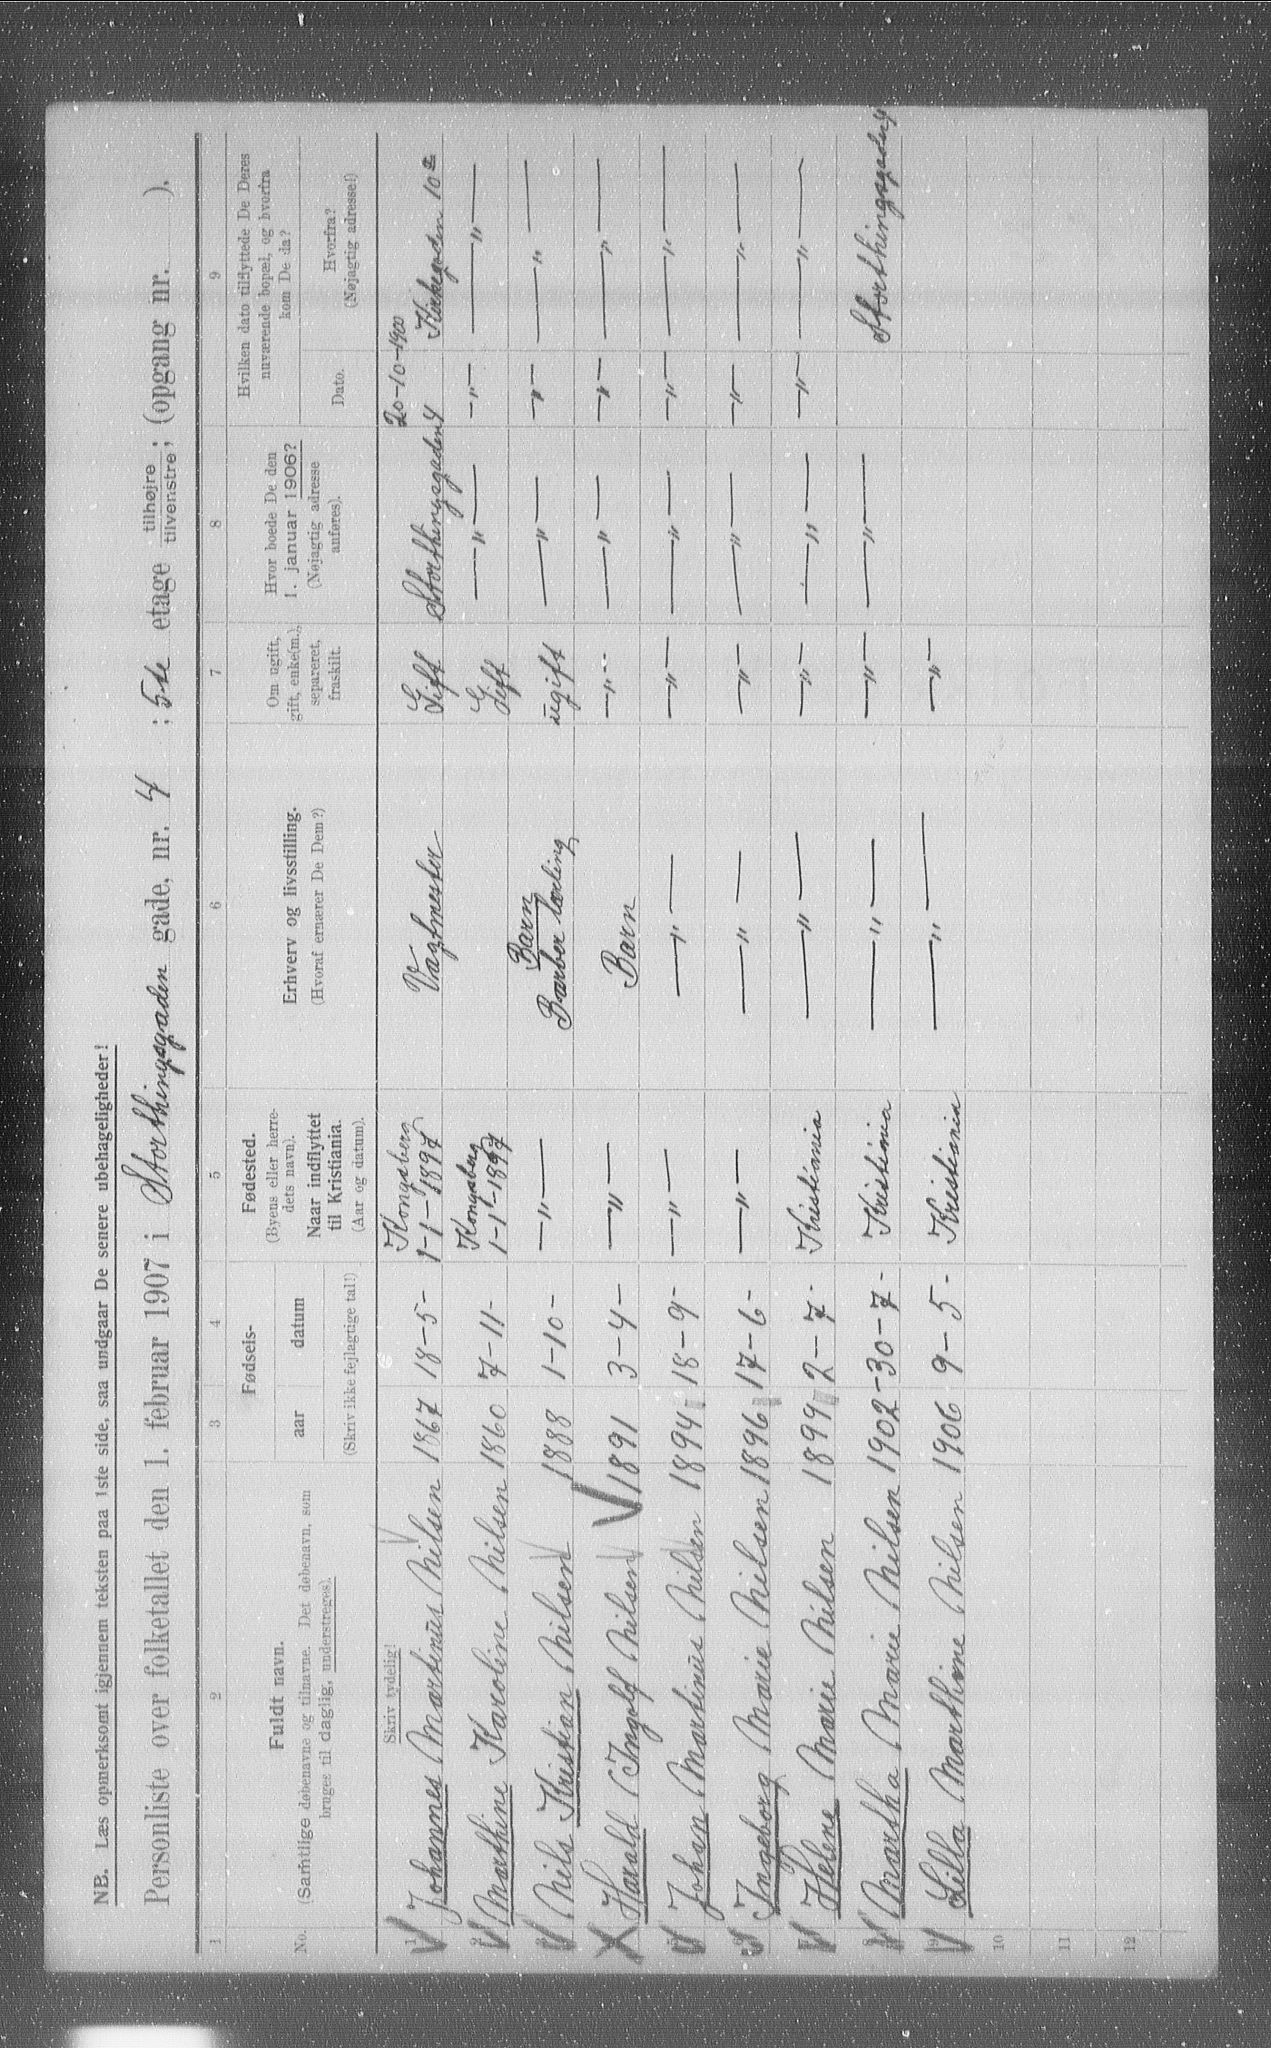 NB. Læs opmerksomt igjennem teksten paa 1ste side, saa undgaar De senere ubehageligheder!
Personliste over folketallet den 1. februar 1907 i Storthingsgaden gade, nr. 4 ; 5te etage tilhøjre tilvenstre; (opgang nr. ).
1 2 3 4 5 6 7 8 9
No.
Fuldt navn.
(Samtlige døbenavne og tilnavne. Det døbenavn, som
bruges til daglig, understreges).
Fødsels-
aar datum
(Skriv ikke fejlagtige tal!)
Fødested.
(Byens eller herre-
dets navn).
Naar indflyttet
til Kristiania.
(Aar og datum).
Erhverv og livsstilling.
(Hvoraf ernærer De Dem?)
Om ugift,
gift, enke(m.),
separeret,
fraskilt.
Hvor boede De den
1. januar 1906?
(Nøjagtig adresse
anføres).
Hvilken dato tilflyttede De Deres
nuværende bopæl, og hvorfra
kom De da?
Dato.
Hvorfra?
(Nøjagtig adresse!)
Skriv tydelig!
1 Johannes Martinus Nilsen 1867 18-5- Kongsberg 1-1-1897 Vagtmester Gift Storthingsgaden 4 20-10-1900 Kirkegaden 10 a
2 Marthine Karoline Nilsen 1860 7-11- Kongsberg 1-1-1897 Gift -"- -"- -"-
3 Nils Kristian Nilsen 1888 1-10- -"- Barn Barber lærling ugift -"- -"- -"-
4 Harald Ingolf Nilsen 1891 3-4- -"- Barn -"- -"- -"- -"-
5 Johan Martinus Nilsen 1894 18-9- -"- -"- -"- -"- -"- -"-
6 Ingeborg Marie Nilsen 1896 17-6- -"- -"- -"- -"- -"- -"-
7 Helene Marie Nilsen 1899 2-7- Kristiania -"- -"- -"- -"- -"-
8 Martha Marie Nilsen 1902 -30-7- Kristiania -"- -"- -"- Storthingsgaden 4
9 Lilla Marthine Nilsen 1906 9-5- Kristiania -"- -"-
10
11
12